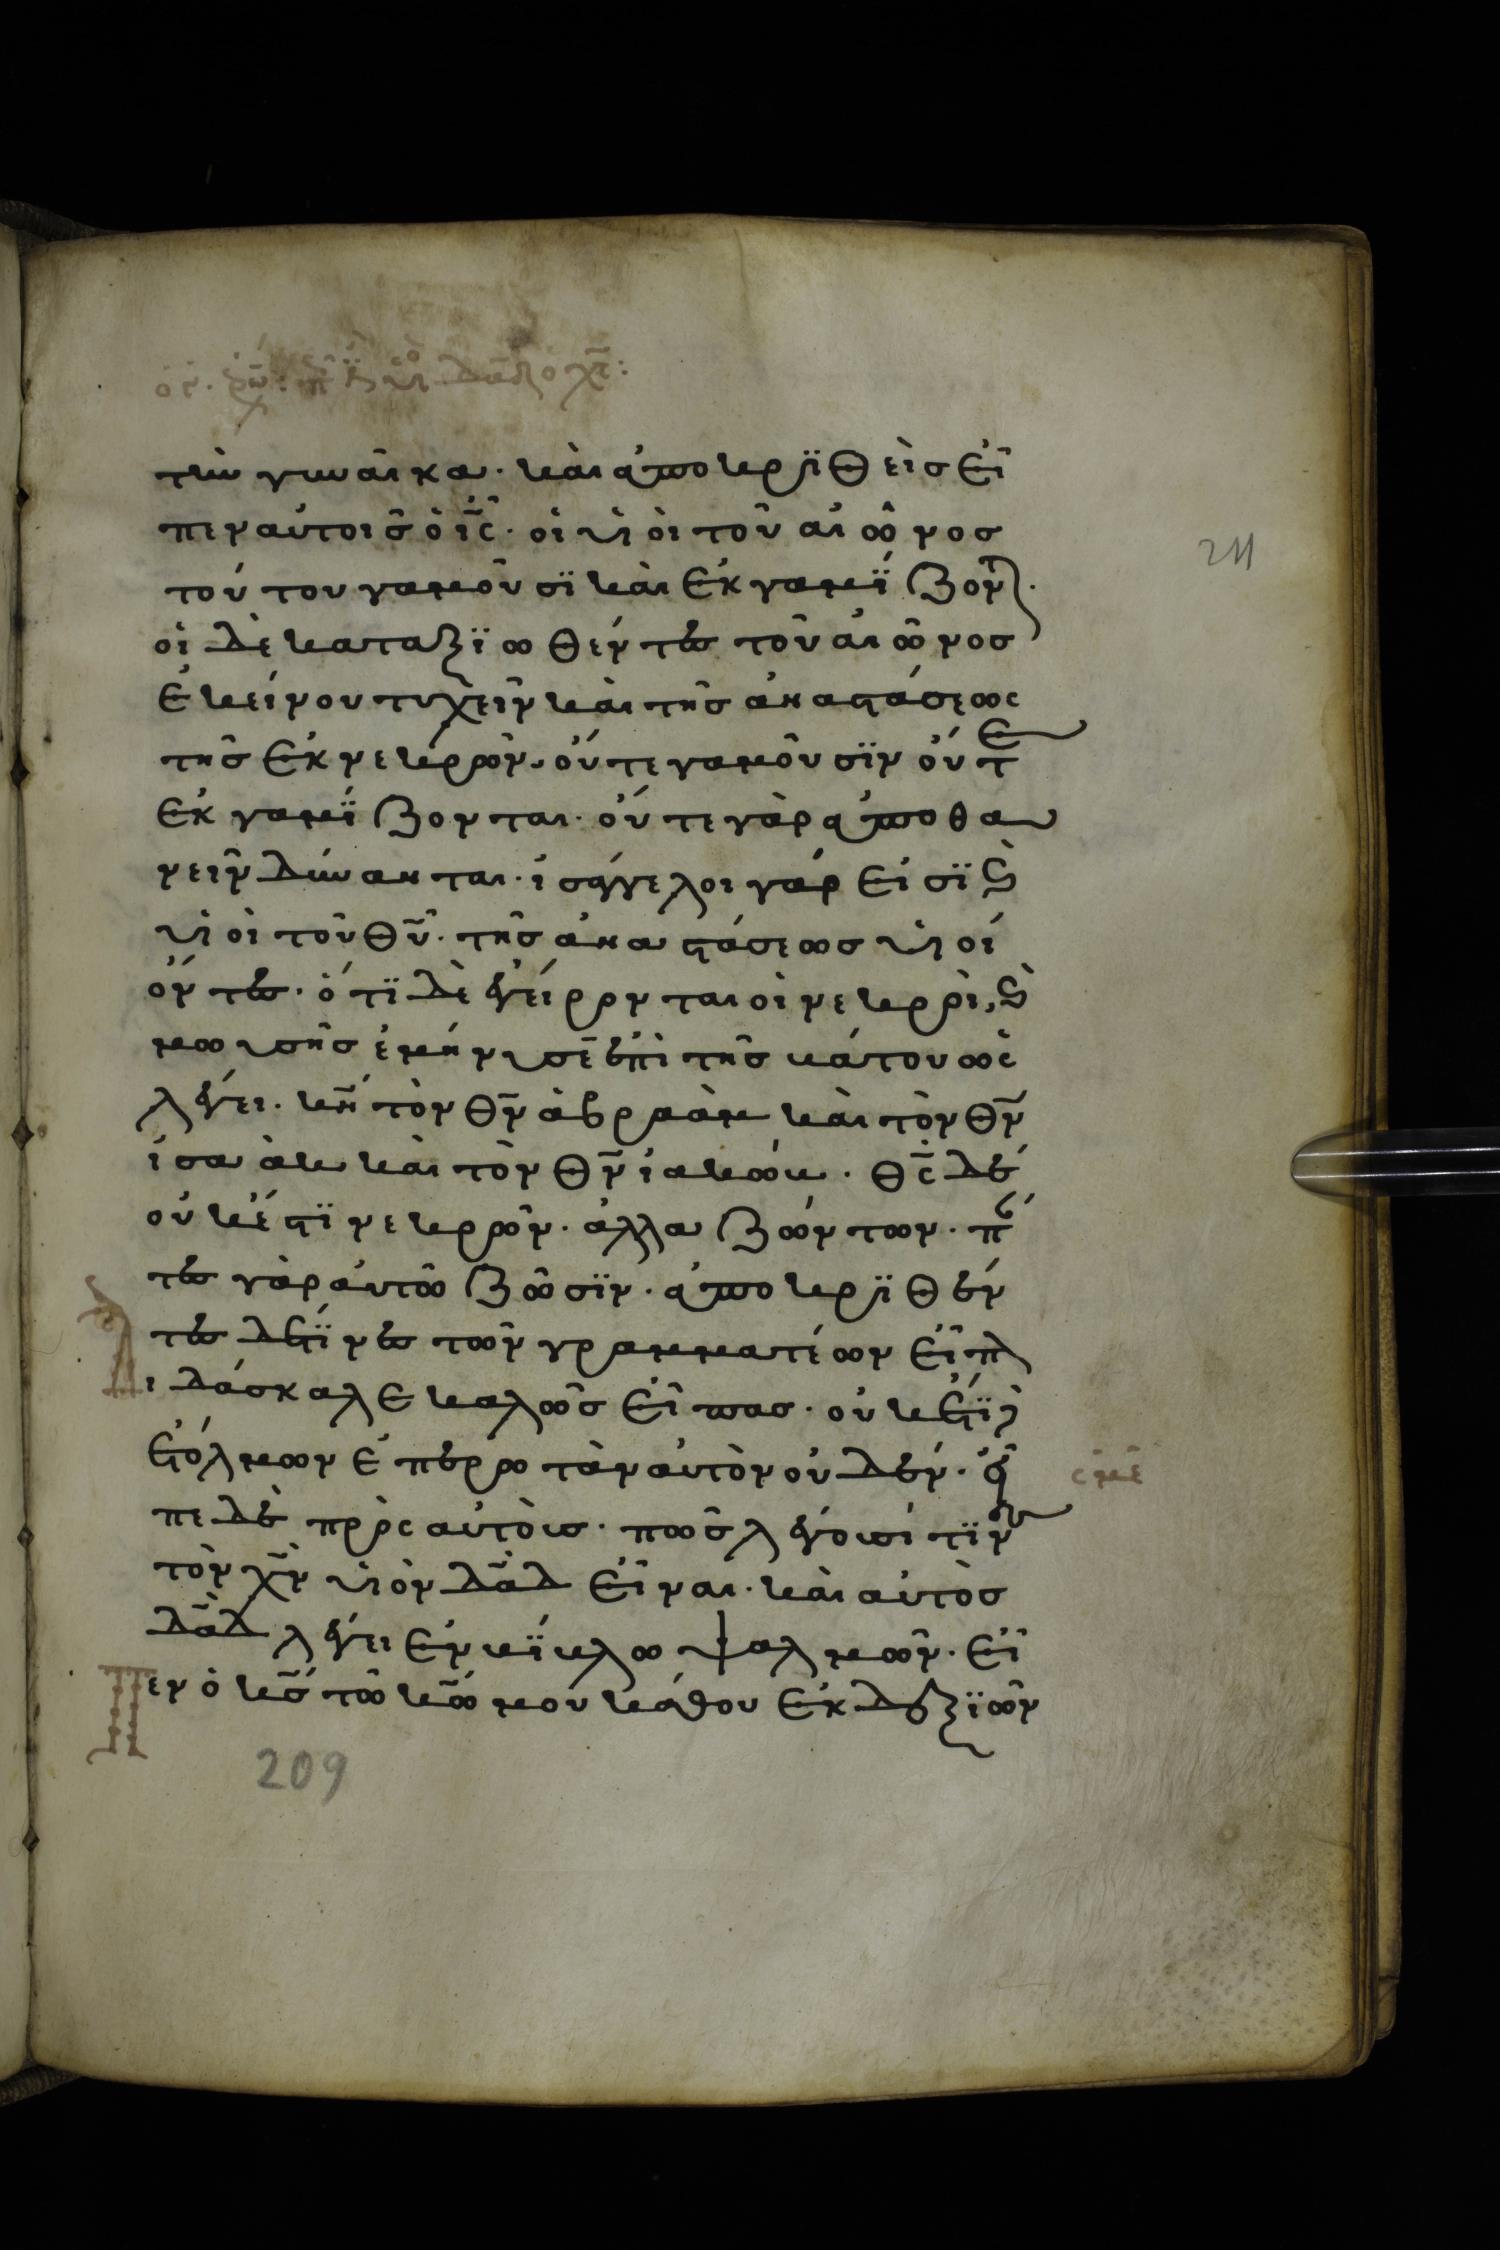 τὴν γυναῖκα. καὶ ἀποκρϊθεὶς εἶ
πεν αὐτοῖς ὁ ις̅. οἱ υἱοὶ τοῦ αἰῶνος
τούτου γαμοῦσϊ καὶ ἐκγαμΐζον.
οἱ δὲ καταξϊωθέντες τοῦ αἰῶνος
ἐκείνου τυχεῖν καὶ τῆς ἀναστάσεως
τῆς ἐκ νεκρῶν. οὔτε γαμοῦσϊν οὔτε
ἐκγαμΐζονται. οὔτε γὰρ ἀποθα
νεῖν δύνανται. ἰσάγγελοι γάρ εἰσϊ ϗ
υἱοὶ τοῦ θυ̅. τῆς ἀναστάσεως υἱοί
ὄντες. ὅτϊ δὲ ἐγείρονται οἱ νεκροὶ, ϗ
μωυσῆς ἐμήνυσεν ἐπὶ τῆς βάτου ὡς
λέγει. κν̅ τὸν θν̅ ἀβραὰμ καὶ τὸν θν̅
ἰσαὰκ καὶ τὸν θν̅ ἰακώβ. θς̅ δέ
οὐκ ἔστϊ νεκρῶν. ἀλλα ζώντων. πάν
τες γὰρ αὐτῶ ζῶσϊν. ἀποκρϊθέν
τες δέ τϊνες τῶν γραμματέων εἶπον
Διδάσκαλε καλῶς εἶπας. οὐκ ἔτϊ δὲ
ἐτόλμων ἐπερωτὰν αὐτὸν οὐδέν. εἶ
πε δὲ πρὸς αὐτοὺς. πῶς λέγουσί τϊνες
τὸν χν̅ υἱὸν δα̅δ εἶναι. καὶ αὐτὸς
δα̅δ λέγει ἐν βΐβλω ψαλμῶν. εἶ
Πεν ὁ κς̅ τῶ κω̅ μου κάθου ἐκ δεξϊῶν
σμε
211
209